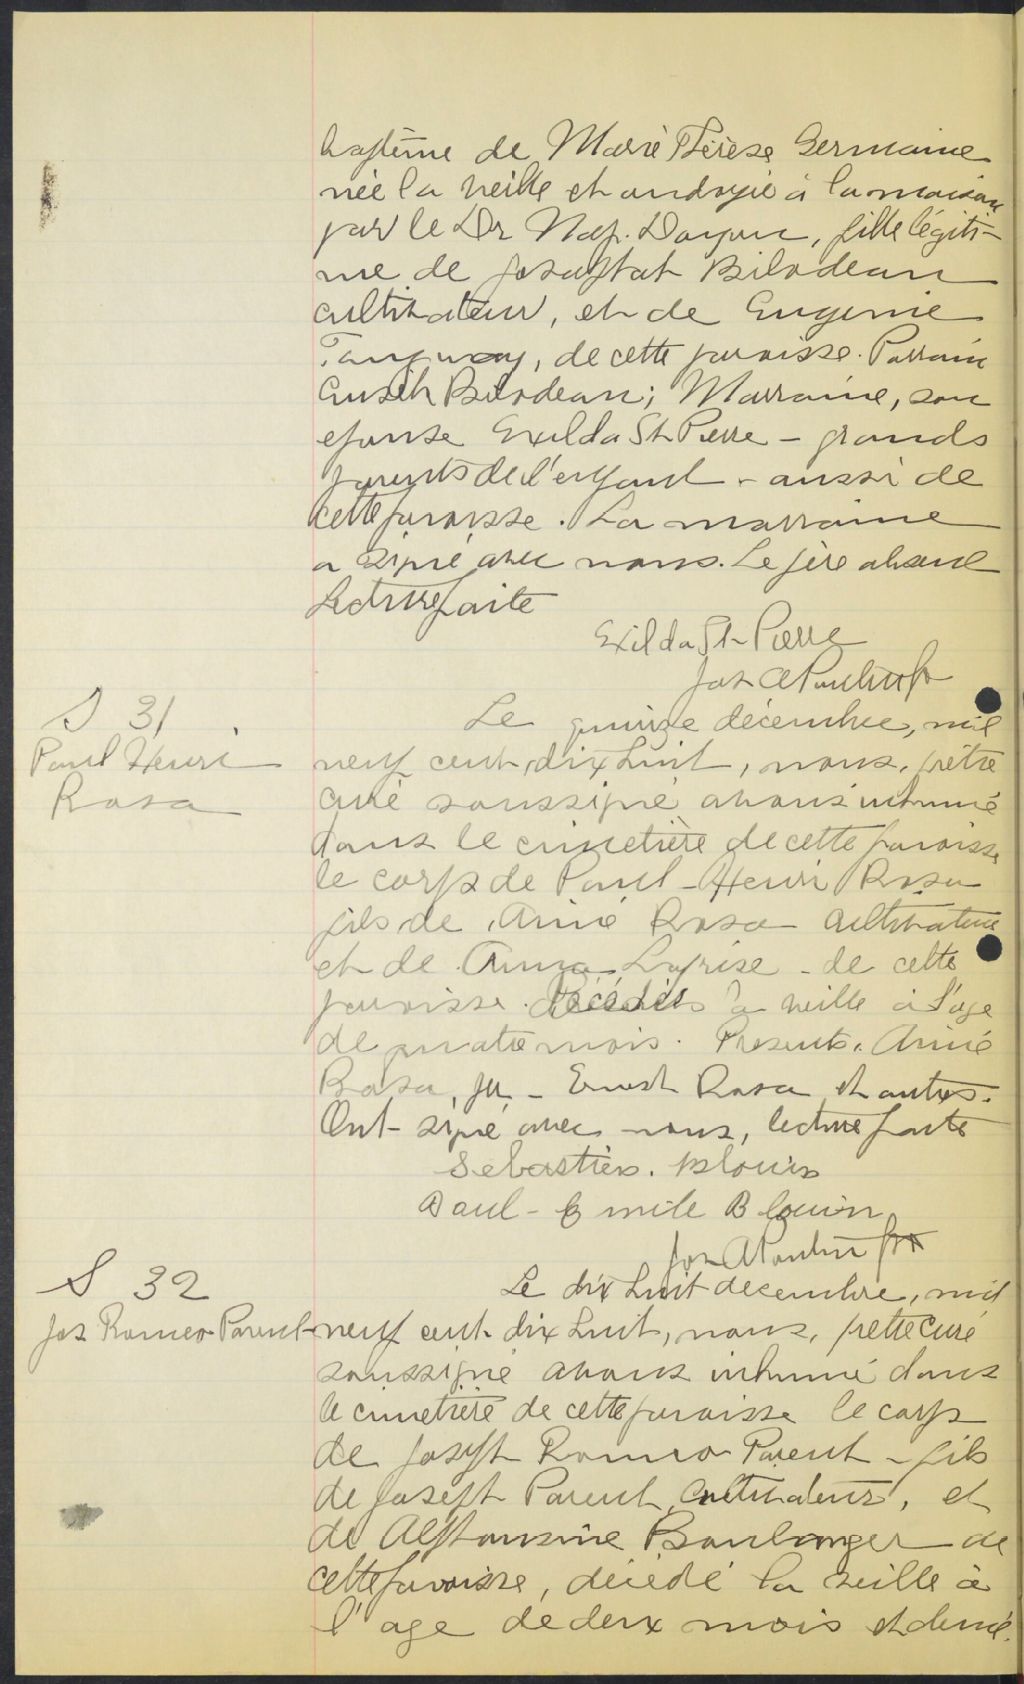 baptême de Marie Thérèse Germaine
née la veille et ondoyée à la maison
par le Dr Nap. , fille légiti-
me de Josaphat Bilodeau
cultivateur, et de Eugenie
Tanguay, de cette paroisse. Parrain
Bilodeau; Marraine, son
epouse Exilda St Pierre - grands
parents de l'enfant - aussi de
cette paroisse. La marraine
a signé avec nous. Le père absent
Lecture faite
Exilda St-Pierre
Jos A Poulin ptr
S 31
Paul Henri
Rosa
Le quinze décembre, mil
neuf cent dix huit, nous, prêtre
curé soussigné avons inhumé
dans le cimetière de cette paroisse
le corps de Paul-Henri Rosa
fils de Aimé Rosa cultivateur
et de Anna Laprise - de cette
paroisse. la veille à l'age
de quatre mois. Presents, Aimé
Rosa, - Ernest Rosa et autres.
Ont signé avec nous, lecture faite
Sebastien. Blouin
Paul-Emile Blouin
Jos A Poulin ptr
S 32
Jos Romeo Parent
Le dix huit decembre, mil
neuf cent dix huit, nous, prêtre curé
soussigné avons inhumé dans
le cimetière de cette paroisse le corps
de Joseph Romeo Parent - fils
de Joseph Parent, cultivateur, et
de Alphonsine Boulanger de
cette paroisse, décédé la veille à
l'age de deux mois et demi.